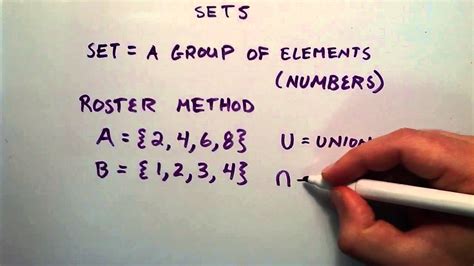 SETS
SET = A GROUP OF ELEMENTS
(NUMBERS)
ROSTER METHOD
A = {2, 4, 6, 8}
U = UNION
B = {1, 2, 3, 4}
∩ -